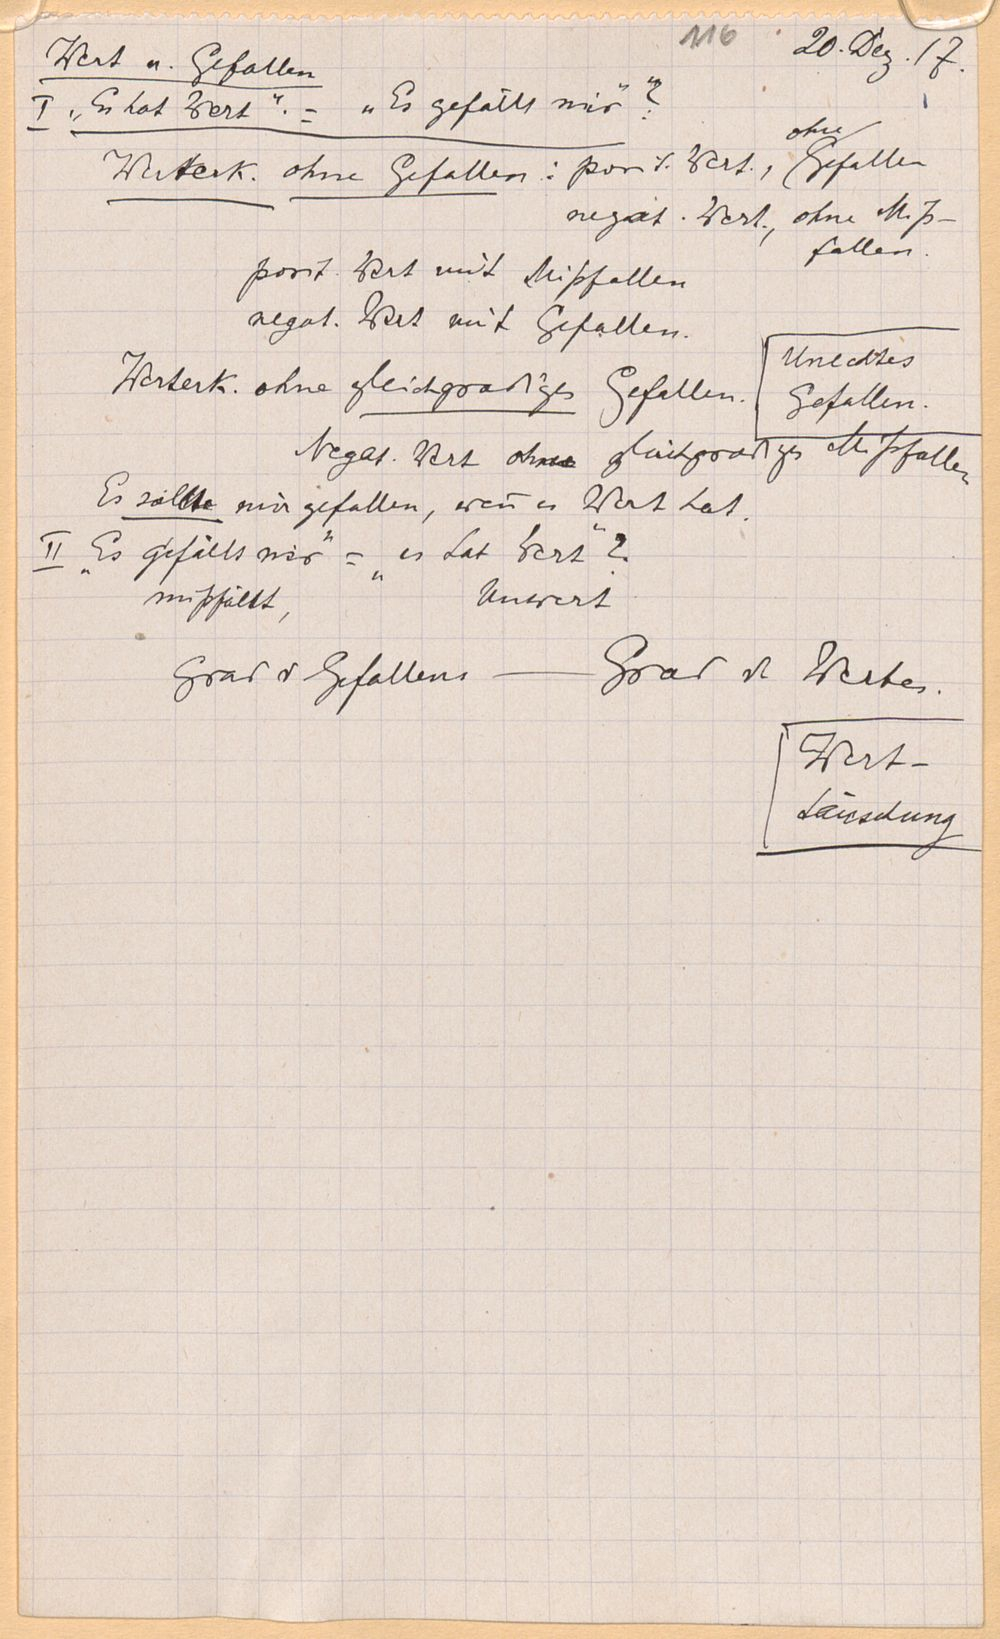 116
20. Dez. 17.
Wert u. Gefallen
I „Es hat Wert“. = „Es gefällt mir“?
Werterk. ohne Gefallen: posit. Wert., ohne Gefallen
negat. Wert., ohne Miß-
fallen.
posit. Wert mit Mißfallen
negat. Wert mit Gefallen.
Werterk. ohne gleichgradiges Gefallen.
Unechtes
Gefallen.
Negat. Wert ohne gleichgradiges Mißfallen
Es sollte mir gefallen, wen̄ es Wert hat.
II „Es gefällt mir“ = „es hat Wert“?
mißfällt, Unwert
Grad d Gefallens — Grad d Wertes.
Wert-
täuschung